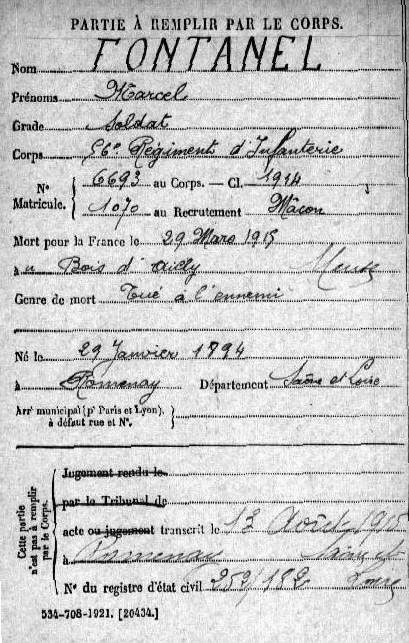 PARTIE À REMPLIR PAR LE CORPS.
Nom FONTANEL
Prénoms Marcel
Grade Soldat
Corps 56e Régiments d'Infanterie
N° Matricule. 6693 au Corps. — Cl. 1914
1070 au Recrutement Mâcon
Mort pour la France le 29 Mars 1915
à u Bois d'Ailly Meuse
Genre de mort Tué à l'ennemi
Né le 29 Janvier 1794
à Romenay Département Saône et Loire
Arrt municipal (pr Paris et Lyon), à défaut rue et N°.
Cette partie n'est pas à remplir par le Corps.
Jugement rendu le
par le Tribunal de
acte ou jugement transcrit le 12 Août 1915
à Romenay Saône et Loire
N° du registre d'état civil 252/182
534-708-1921. [20434.]